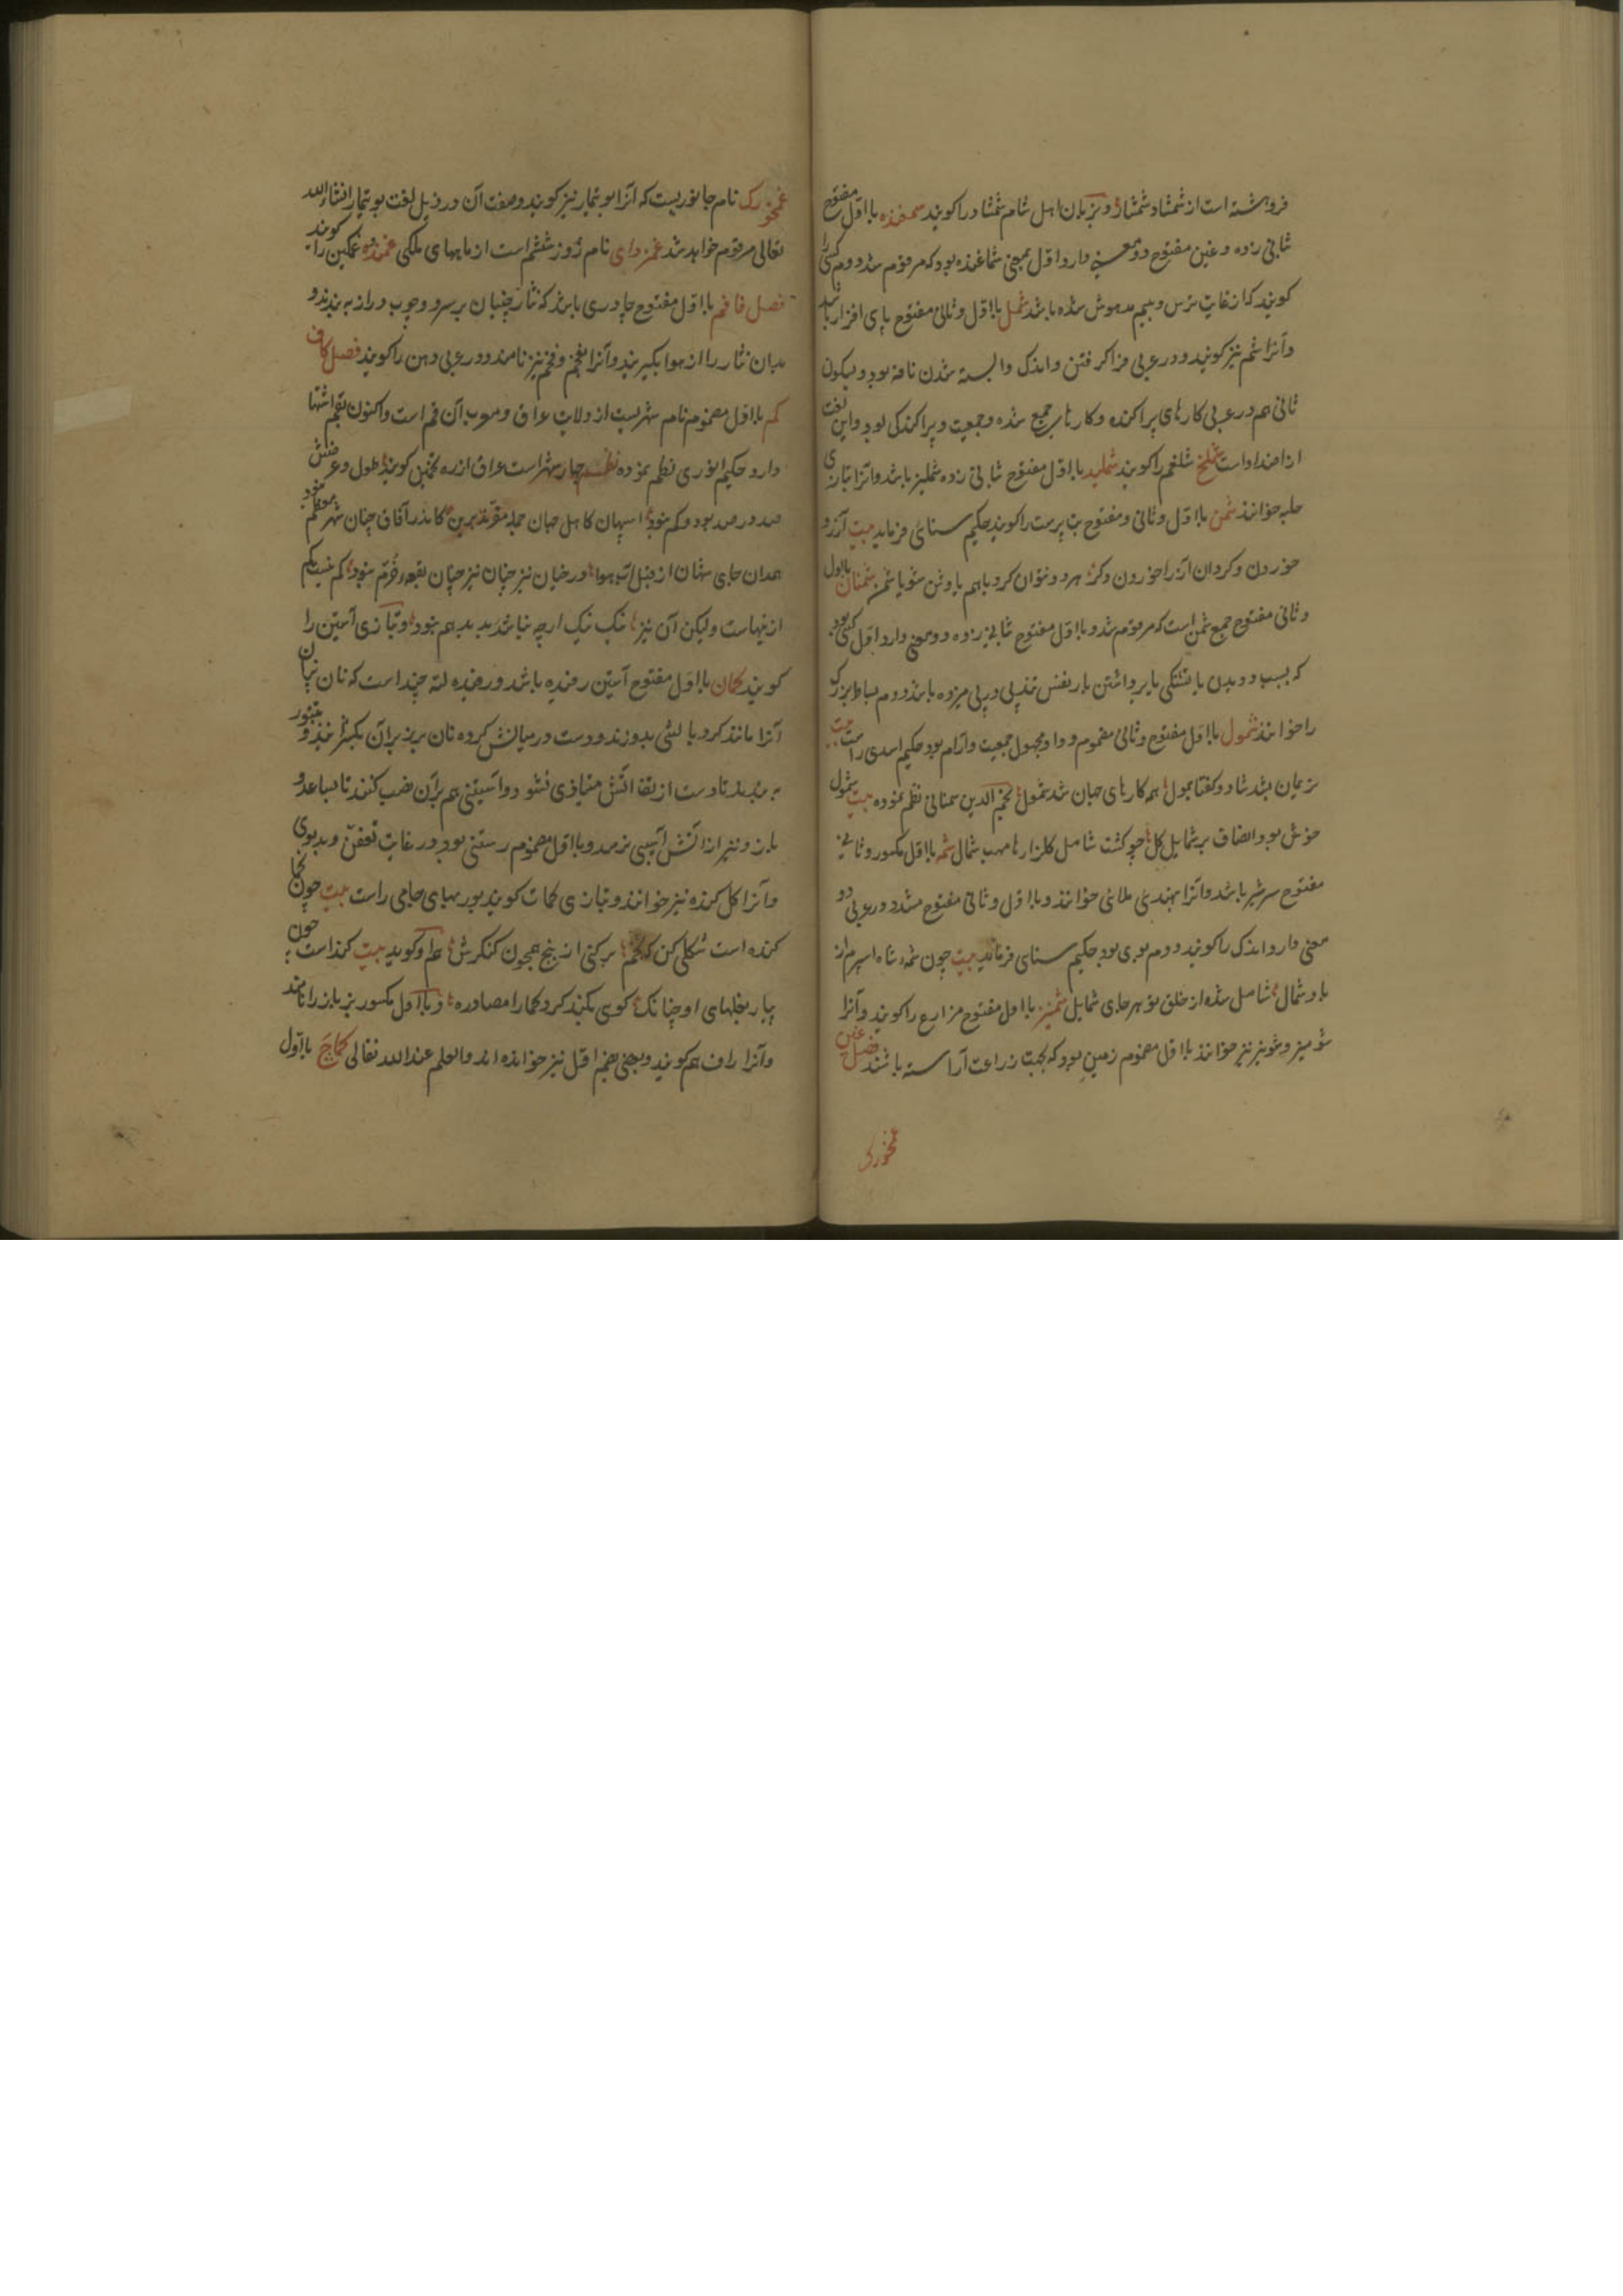 فروهشته است از شمشاد شمشاذ و بزبان اهل شام شمشاد را کویند سمغنده با اول مفتوح
ثانی زده و غین مفتوح دو معنی دارد اول بمعنی شماغنده بود که مرقوم شد دوم کسی را
کویند که از غایت ترس و بیم مدهوش شده باشد شمل با اول و ثانی مفتوح پای افزار باشد
و آنرا شم نیز کویند و در عربی فرا کرفتن و اندک و ابسته شدن ناقه بود و بسکون
ثانی هم در عربی کارهای پراکنده و کارهای جمع شده و جمعیت و پراکندکی بود و این لغت
از اضداد است شملخ شلغم را کویند شملید با اول مفتوح ثانی زده شملیز باشد و آنرا بتازی
حلبه خوانند شمن با اول و ثانی مفتوح بت پرست را کویند حکیم سنائی فرماید بیت آرزو
خوردن و کردان آز را خوردن و کر هر دو نتوان کرد باهم یا وثن شو یا شمن شمنان با اول
و ثانی مفتوح جمع شمن است که مرقوم شد و با اول مفتوح ثانی زده دو معنی دارد اول کسی بود
که بسبب دویدن یا تشنکی یا برداشتن بار نفس تند پی در پی میزده باشد دوم بساط بزرک
را خوانند شمول با اول مفتوح و ثانی مضموم و واو مجهول جمعیت و آرام بود حکیم اسدی راست بیت
نریمان بشد شاد و کفتا بمول همه کارهای جهان شد شمول نجم الدین سمنانی نظم نموده بیت شمول
خوش بود انصاف بر شمایل کل چو کشت شامل کلزارها مهب شمال شمه با اول مکسور و ثانی
مفتوح سرشیر باشد و آنرا بهندی ملائی خوانند و با اول و ثانی مفتوح مشدد در عربی دو
معنی دارد اندک را کویند دوم بوی بود حکیم سنای فرماید بیت چون شمه شاه اسپرم از
باد شمال شامل شده از خلق تو هر جای شمایل شمیز با اول مفتوح مزارع را کویند و آنرا
شومیز و شویز نیز خوانند با اول مضموم زمین بود که بجهت زراعت آراسته باشند فصل غین
غمخورک
غمخورک نام جانوریست که آنرا بوتیمار نیز کویند و صفت آن در ذیل لغت بوتیمار انشاءالله
تعالی مرقوم خواهد شد غمزدای نام روز ششم است از ماههای ملکی غمنده غمکین را کویند
فصل فا فم با اول مفتوح چادری باشد که نثار چینان بر سر دو چوب دراز به بندند و
بدان نثار را از هوا بکیرند و آنرا فخم و فخم نیز نامند و در عربی دهن را کویند فصل کاف
کم با اول مضموم نام شهریست از ولایت عراق و معرب آن قم است و اکنون بقم اشتهار
دارد حکیم انوری نظم نموده نظم چهار شهر است عراق از ره تخمین کویند طول و عرضش
صد در صد بود و کم نبود اسپهان کاهل جهان جمله مقرند برین کاندر آفاق چنان شهر معظم نبود
همدان جای شهان از قبل آب و هوا در جهان نیز چنان نیز چنان بقعه خرم نبود کم نیست کم
ازینهاست ولیکن آن نیز نیک نیک ارچه نباشد بد بد هم نبود و بتازی آستین را
کویند کمان با اول مفتوح آستین رفنده باشد و رفنده لته چند است که نان پزان
آنرا مانند کرد بالشی بدوزند و دست در میانش کرده نان پزند برآن بکسترانند و بتنور
به بندند تا دست از تف آتش متاذی نشود و آستینی هم برآن نصب کنند تا ساعد و
بازو نیز از آتش آسیبی نرسد و با اول مضموم رستنی بود در غایت تعفن و بدبوی
و آنرا کل کنده نیز خوانند و بتازی کمات کویند پور بهای جامی راست بیت چون کما
کنده است شکل کن که کم برکنی از بیخ همچون کنکرش هم او کوید بیت کنداست چون
پیاز بغلهای او چنانک کوی بکند کرد کما را مصادره و با اول مکسور بزبان رانانند
و آنرا راف هم کویند و بمعنی بضم اول نیز خوانده اند والعلم عندالله تعالی کماج با اول